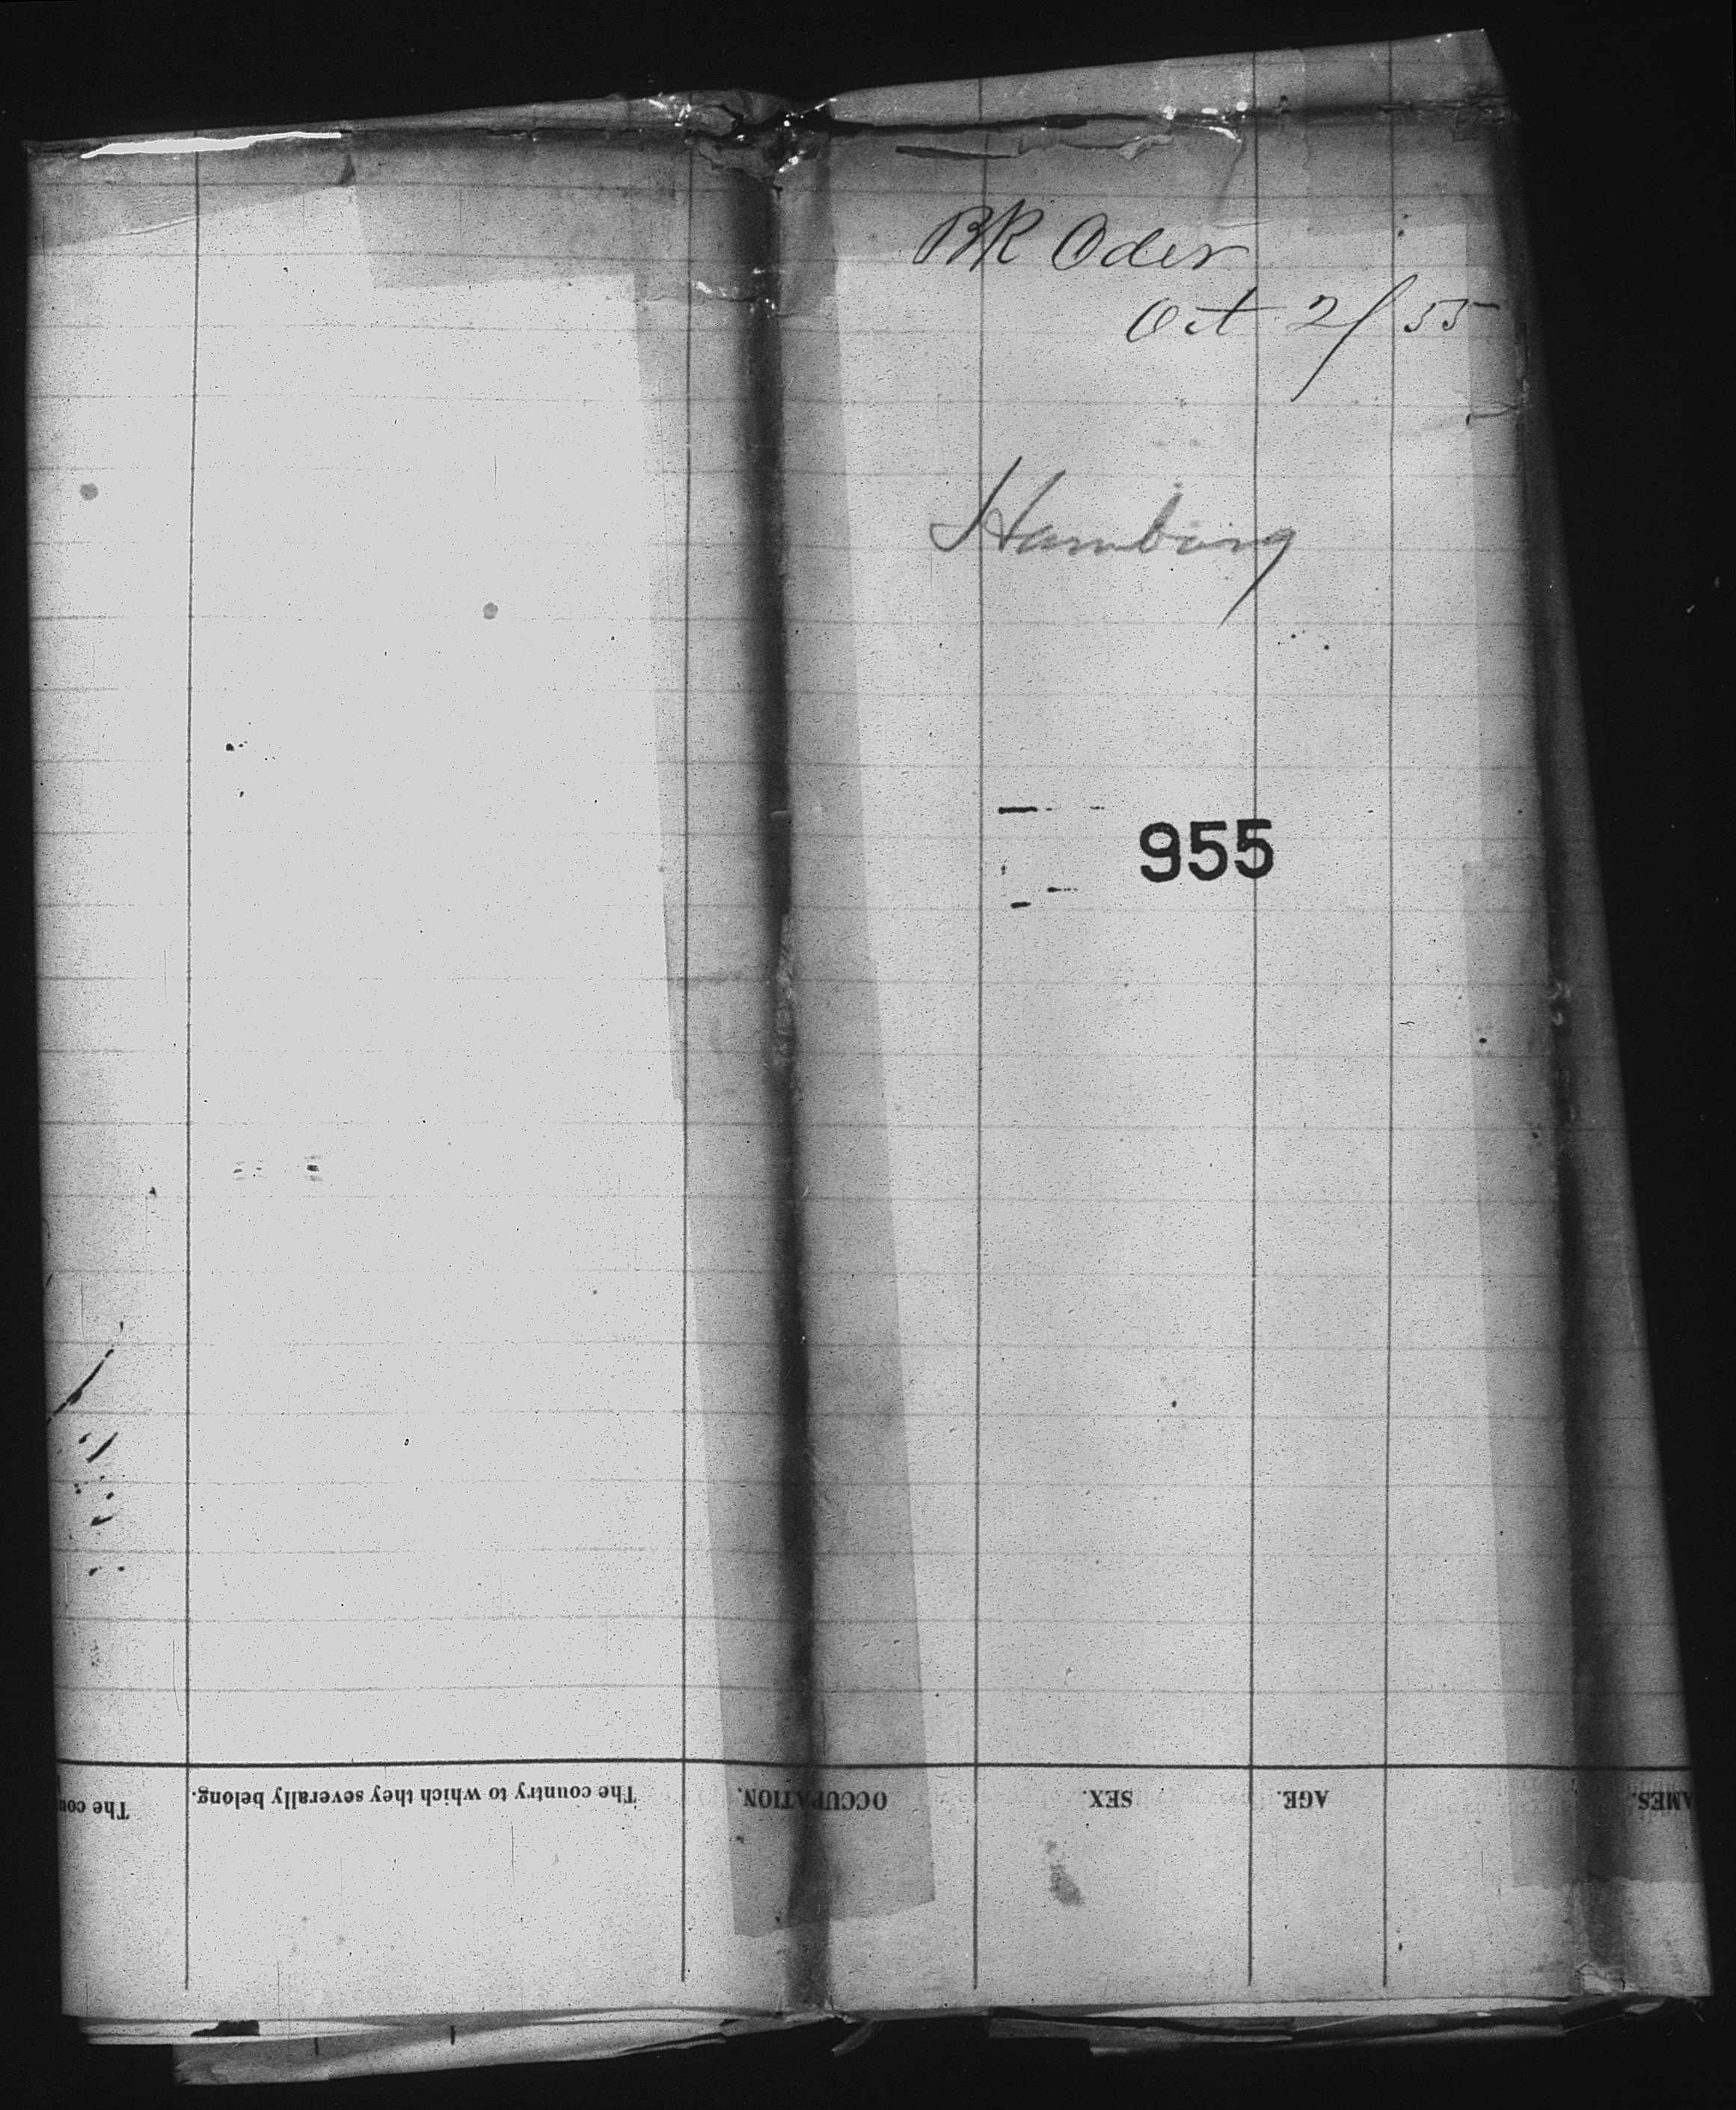 BK Oder
Oct 2/55
Hamburg
955
The country to which they severally belong.
OCCUPATION.
SEX.
AGE.
AMES.
The cou